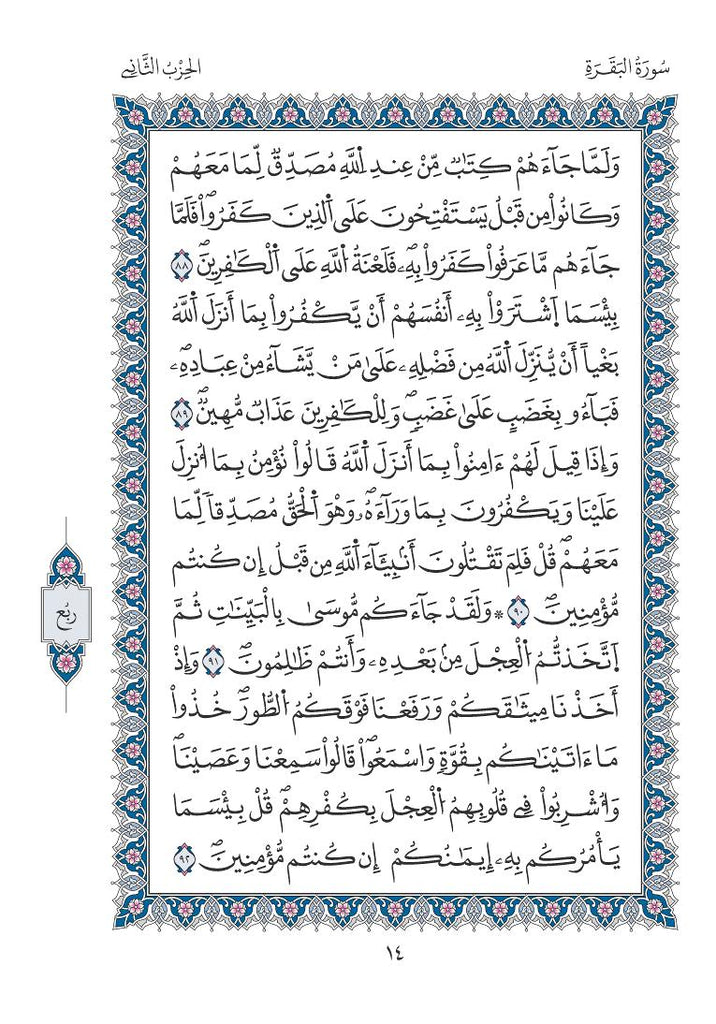 سُورَةُ البَقَرَةِ
الحِزْبُ الثَّانِي
وَلَمَّا جَآءَهُمْ كِتَٰبٌ مِّنْ عِندِ اِ۬للَّهِ مُصَدِّقٌ لِّمَا مَعَهُمْ
وَكَانُواْ مِن قَبْلُ يَسْتَفْتِحُونَ عَلَى اَ۬لذِينَ كَفَرُواْۖ فَلَمَّا
جَآءَهُم مَّا عَرَفُواْ كَفَرُواْ بِهِۦۖ فَلَعْنَةُ اُ۬للَّهِ عَلَى اَ۬لْكَٰفِرِينَۖ ٨٨
بِيسَمَا اَ۪شْتَرَوْاْ بِهِۦٓ أَنفُسَهُمْ أَنْ يَّكْفُرُواْ بِمَآ أَنزَلَ اَ۬للَّهُ
بَغْياً أَنْ يُّنَزِّلَ اَ۬للَّهُ مِن فَضْلِهِۦ عَلَىٰ مَنْ يَّشَآءُ مِنْ عِبَادِهِۦۖ
فَبَآءُو بِغَضَبٍ عَلَىٰ غَضَبٍۖ وَلِلْكَٰفِرِينَ عَذَابٌ مُّهِينٌۖ ٨٩
وَإِذَا قِيلَ لَهُمْ ءَامِنُواْ بِمَآ أَنزَلَ اَ۬للَّهُ قَالُواْ نُؤْمِنُ بِمَآ أُنزِلَ
عَلَيْنَا وَيَكْفُرُونَ بِمَا وَرَآءَهُۥ وَهْوَ اَ۬لْحَقُّ مُصَدِّقاً لِّمَا
مَعَهُمْۖ قُلْ فَلِمَ تَقْتُلُونَ أَنۢبِيَآءَ اَ۬للَّهِ مِن قَبْلُ إِن كُنتُم
مُّؤْمِنِينَۖ ٩٠ ۞ وَلَقَدْ جَآءَكُم مُّوسَىٰ بِالْبَيِّنَٰتِ ثُمَّ
اَ۪تَّخَذتُّمُ اُ۬لْعِجْلَ مِنۢ بَعْدِهِۦ وَأَنتُمْ ظَٰلِمُونَۖ ٩١ وَإِذْ
أَخَذْنَا مِيثَٰقَكُمْ وَرَفَعْنَا فَوْقَكُمُ اُ۬لطُّورَۖ خُذُواْ
مَآ ءَاتَيْنَٰكُم بِقُوَّةٍ وَاسْمَعُواْۖ قَالُواْ سَمِعْنَا وَعَصَيْنَاۖ
وَأُشْرِبُواْ فِي قُلُوبِهِمُ اُ۬لْعِجْلَ بِكُفْرِهِمْۖ قُلْ بِيسَمَا
يَأْمُرُكُم بِهِۦٓ إِيمَٰنُكُمْ إِن كُنتُم مُّؤْمِنِينَۖ ٩٢
رُبُع
١٤